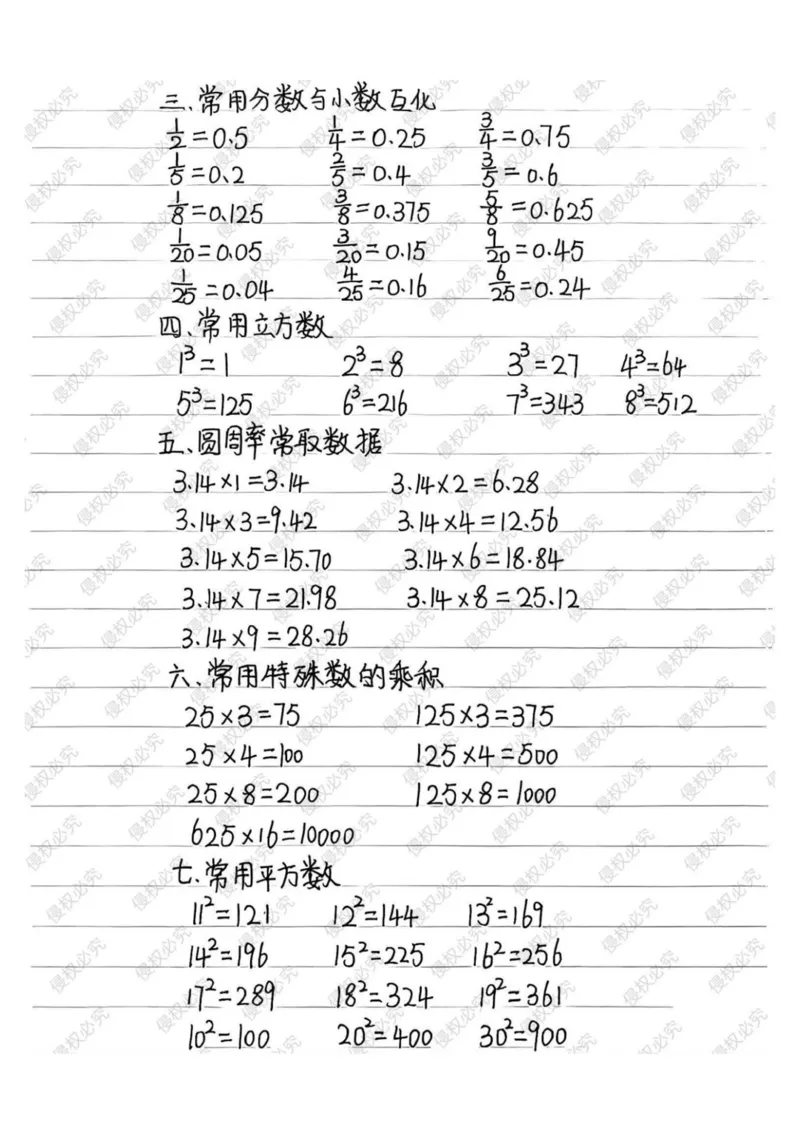 三、常用分数与小数互化
1/2=0.5 1/4=0.25 3/4=0.75
1/5=0.2 2/5=0.4 3/5=0.6
1/8=0.125 3/8=0.375 5/8=0.625
1/20=0.05 3/20=0.15 9/20=0.45
1/25=0.04 4/25=0.16 6/25=0.24
四、常用立方数
1³=1 2³=8 3³=27 4³=64
5³=125 6³=216 7³=343 8³=512
五、圆周率常取数据
3.14×1=3.14 3.14×2=6.28
3.14×3=9.42 3.14×4=12.56
3.14×5=15.70 3.14×6=18.84
3.14×7=21.98 3.14×8=25.12
3.14×9=28.26
六、常用特殊数的乘积
25×3=75 125×3=375
25×4=100 125×4=500
25×8=200 125×8=1000
625×16=10000
七、常用平方数
11²=121 12²=144 13²=169
14²=196 15²=225 16²=256
17²=289 18²=324 19²=361
10²=100 20²=400 30²=900
侵权必究